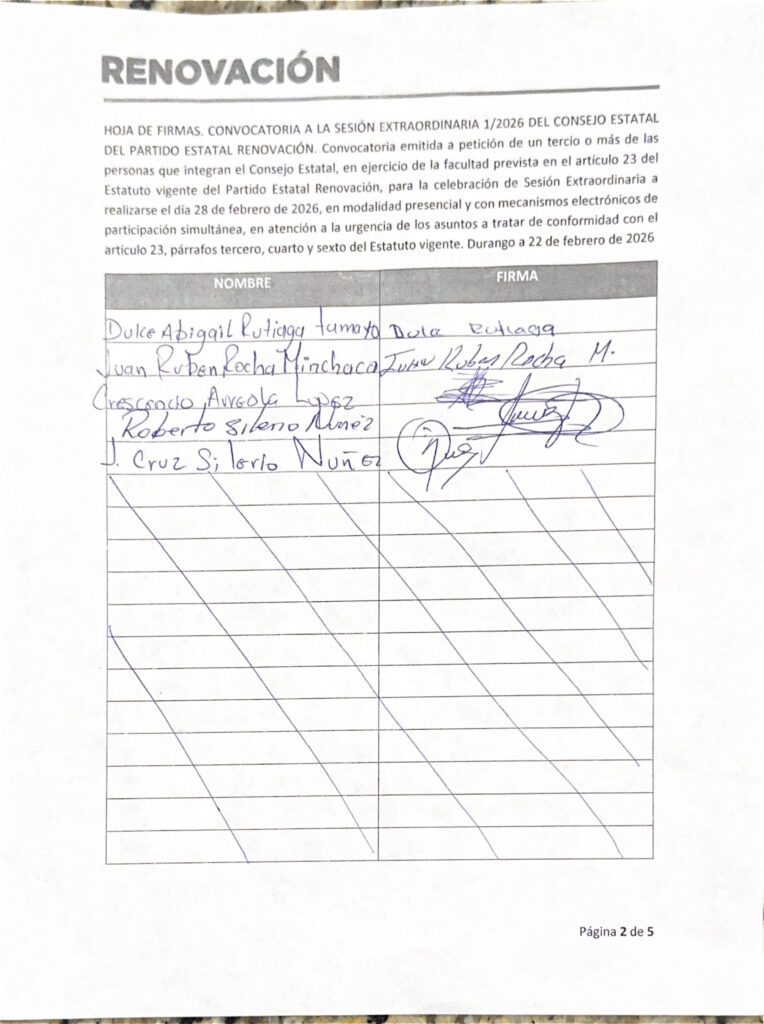 RENOVACIÓN
HOJA DE FIRMAS. CONVOCATORIA A LA SESIÓN EXTRAORDINARIA 1/2026 DEL CONSEJO ESTATAL
DEL PARTIDO ESTATAL RENOVACIÓN. Convocatoria emitida a petición de un tercio o más de las
personas que integran el Consejo Estatal, en ejercicio de la facultad prevista en el artículo 23 del
Estatuto vigente del Partido Estatal Renovación, para la celebración de Sesión Extraordinaria a
realizarse el día 28 de febrero de 2026, en modalidad presencial y con mecanismos electrónicos de
participación simultánea, en atención a la urgencia de los asuntos a tratar de conformidad con el
artículo 23, párrafos tercero, cuarto y sexto del Estatuto vigente. Durango a 22 de febrero de 2026
NOMBRE FIRMA
Dulce Abigail Rutiaga tamayo Dulce Rutiaga
Juan Ruben Rocha Minchaca Juan Ruben Rocha M.
Crescencio Avreola Lopez
Roberto Silerio Nuñez
J. Cruz Silerio Nuñez
Página 2 de 5